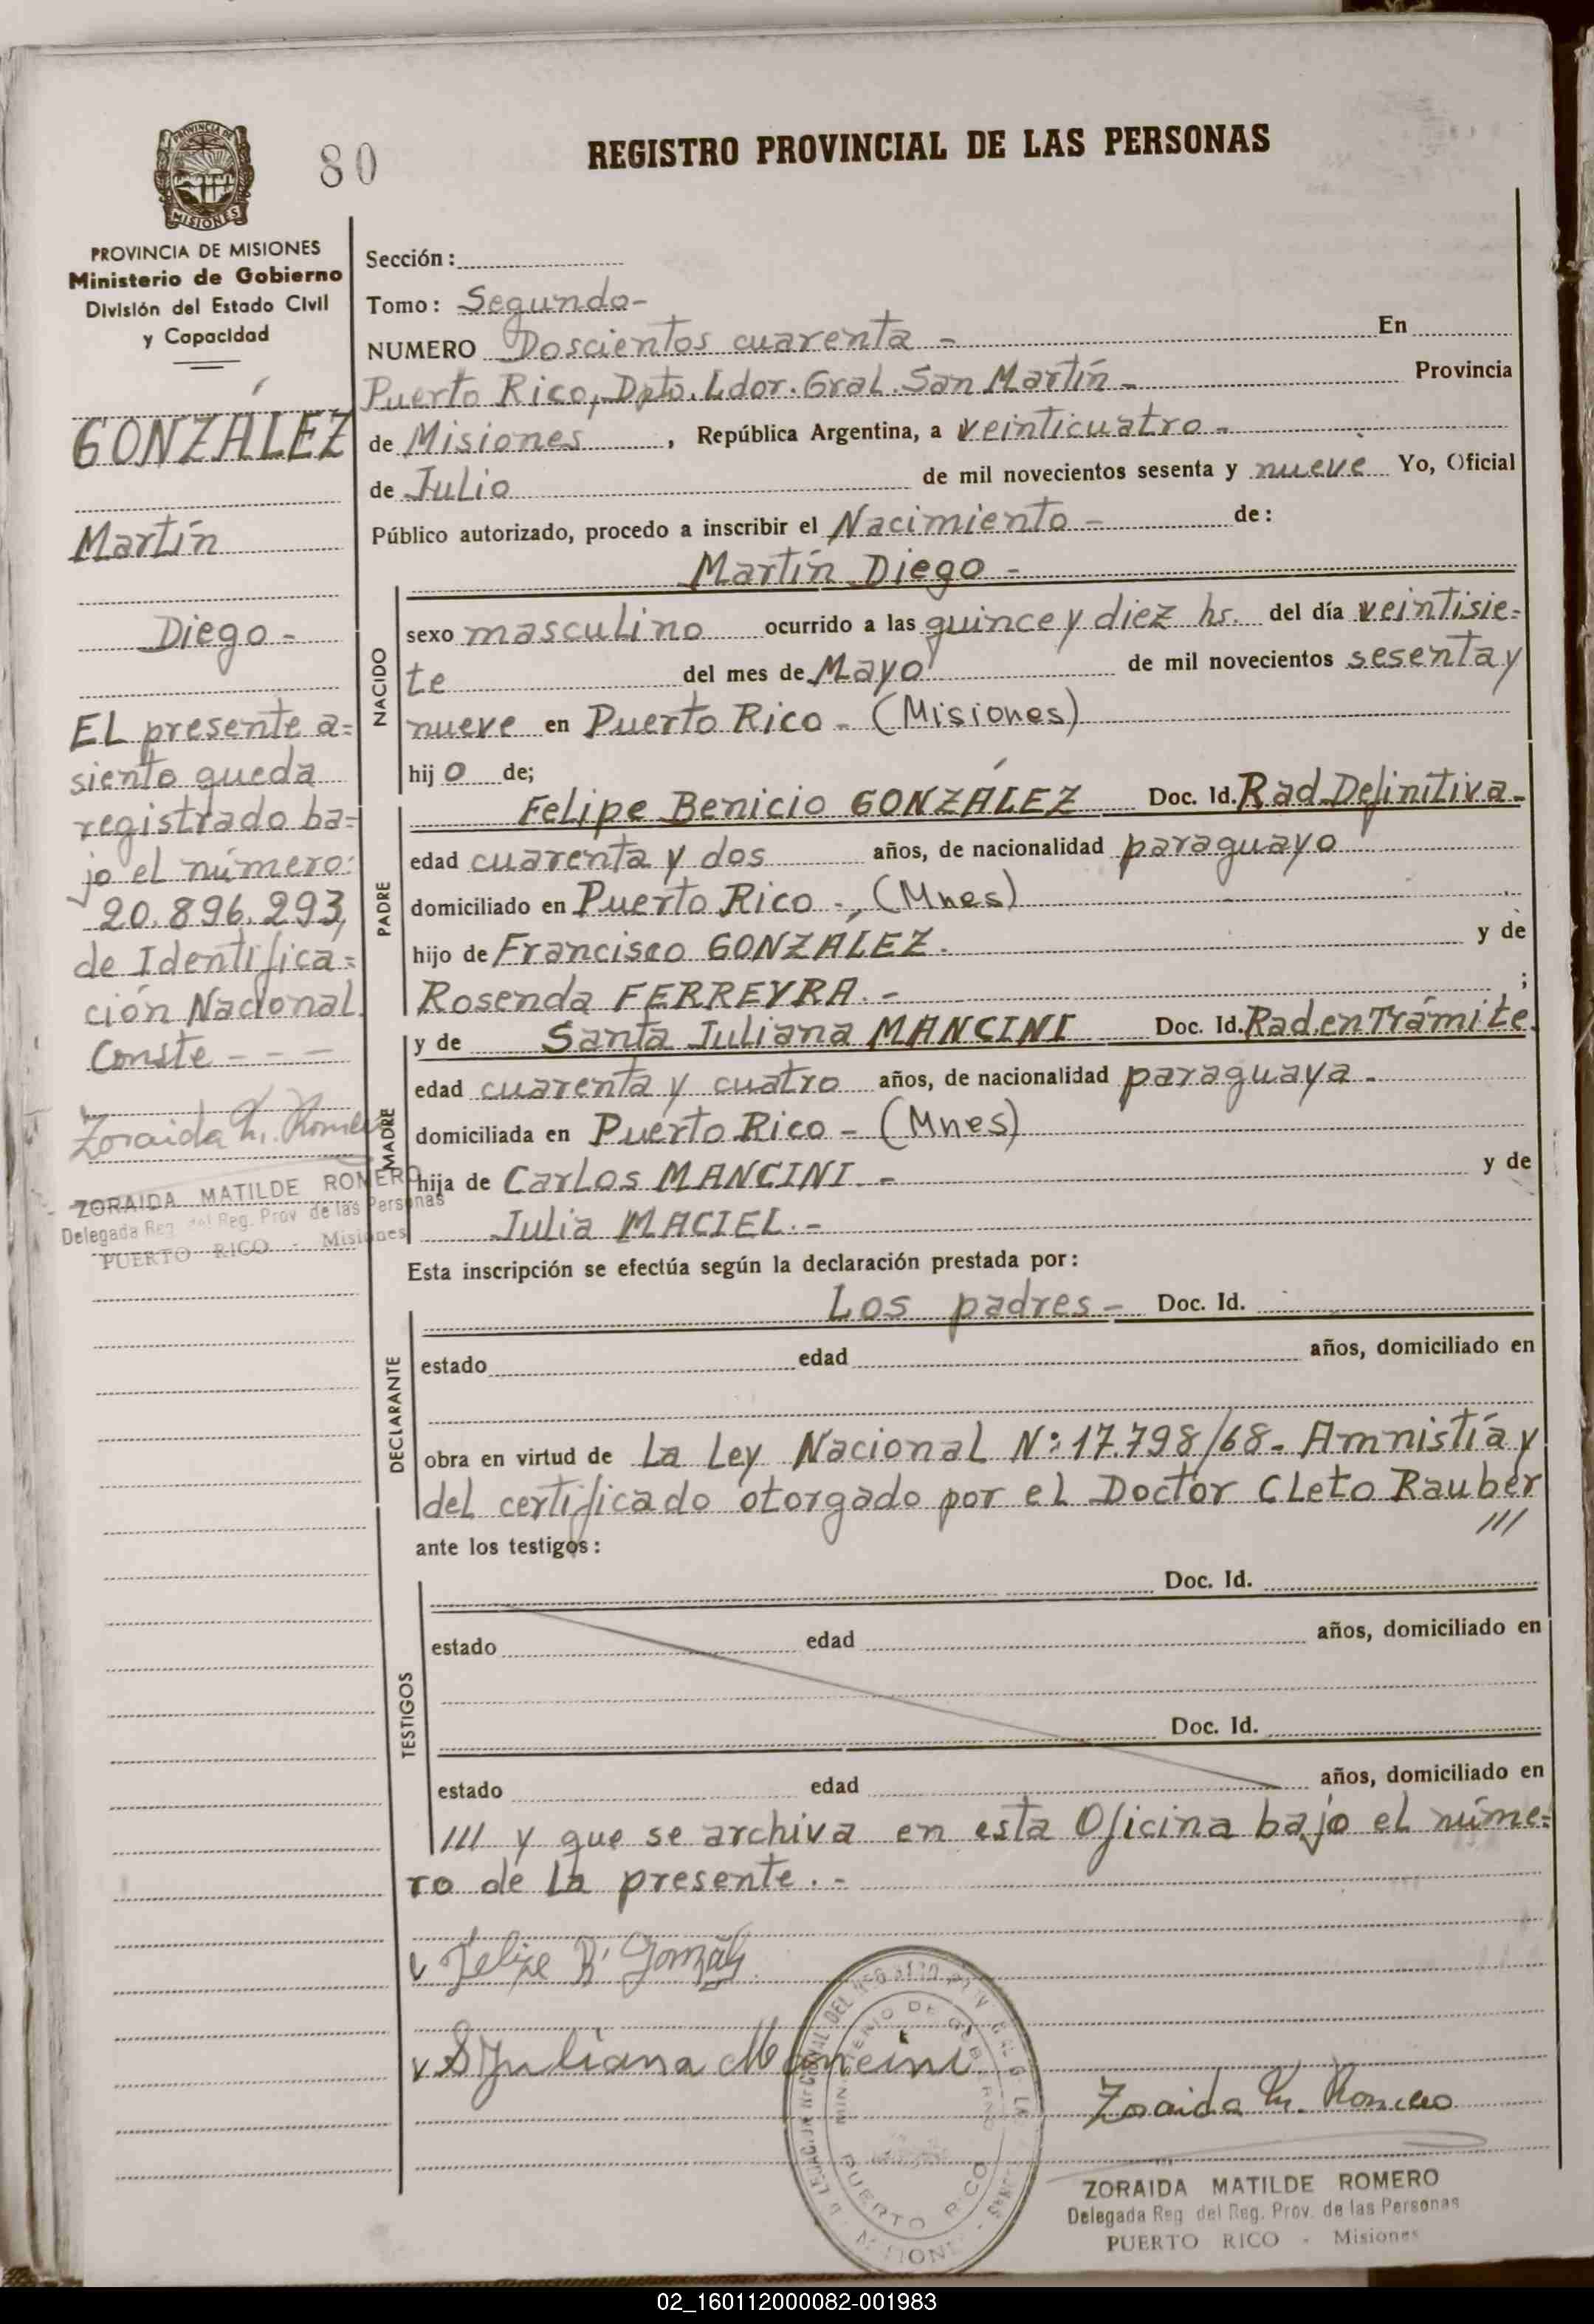 80
REGISTRO PROVINCIAL DE LAS PERSONAS
PROVINCIA DE MISIONES
MISIONES
PROVINCIA DE MISIONES
Ministerio de Gobierno
División del Estado Civil
y Capacidad
GONZÁLEZ
Martín
Diego -
El presente a=
siento queda
registrado ba=
jo el número:
20.896.293,
de Identifica=
ción Nacional.
Conste - - -
Zoraida M. Romero
ZORAIDA MATILDE ROMERO
Delegada Reg. del Reg. Prov. de las Personas
PUERTO RICO - Misiones
Sección:
Tomo: Segundo-
NUMERO Doscientos cuarenta - En
Puerto Rico, Dpto. Ldor. Gral. San Martín - Provincia
de Misiones, República Argentina, a veinticuatro -
de Julio de mil novecientos sesenta y nueve Yo, Oficial
Público autorizado, procedo a inscribir el Nacimiento - de:
Martín Diego -
NACIDO
sexo masculino ocurrido a las quince y diez hs. del día veintisie=
te del mes de Mayo de mil novecientos sesenta y
nueve en Puerto Rico - (Misiones)
hijo de;
PADRE
Felipe Benicio GONZÁLEZ Doc. Id. Rad. Definitiva -
edad cuarenta y dos años, de nacionalidad paraguayo
domiciliado en Puerto Rico -, (Mnes)
hijo de Francisco GONZÁLEZ. y de
Rosenda FERREYRA. - ;
MADRE
y de Santa Juliana MANCINI Doc. Id. Rad. en Trámite.
edad cuarenta y cuatro años, de nacionalidad paraguaya -
domiciliada en Puerto Rico - (Mnes)
hija de Carlos MANCINI - y de
Julia MACIEL. -
Esta inscripción se efectúa según la declaración prestada por:
DECLARANTE
Los padres - Doc. Id.
estado edad años, domiciliado en
obra en virtud de la Ley Nacional Nº: 17.798/68 - Amnistía y
del certificado otorgado por el Doctor Cleto Rauber
///
ante los testigos:
TESTIGOS
Doc. Id.
estado edad años, domiciliado en
Doc. Id.
estado edad años, domiciliado en
/// y que se archiva en esta Oficina bajo el núme=
ro de la presente. -
Felipe B. Gonzál
S Juliana Mancini
MINISTERIO DE GOBIERNO
PUERTO RICO
MISIONES
Zoraida M. Romero
ZORAIDA MATILDE ROMERO
Delegada Reg. del Reg. Prov. de las Personas
PUERTO RICO - Misiones
02_160112000082-001983